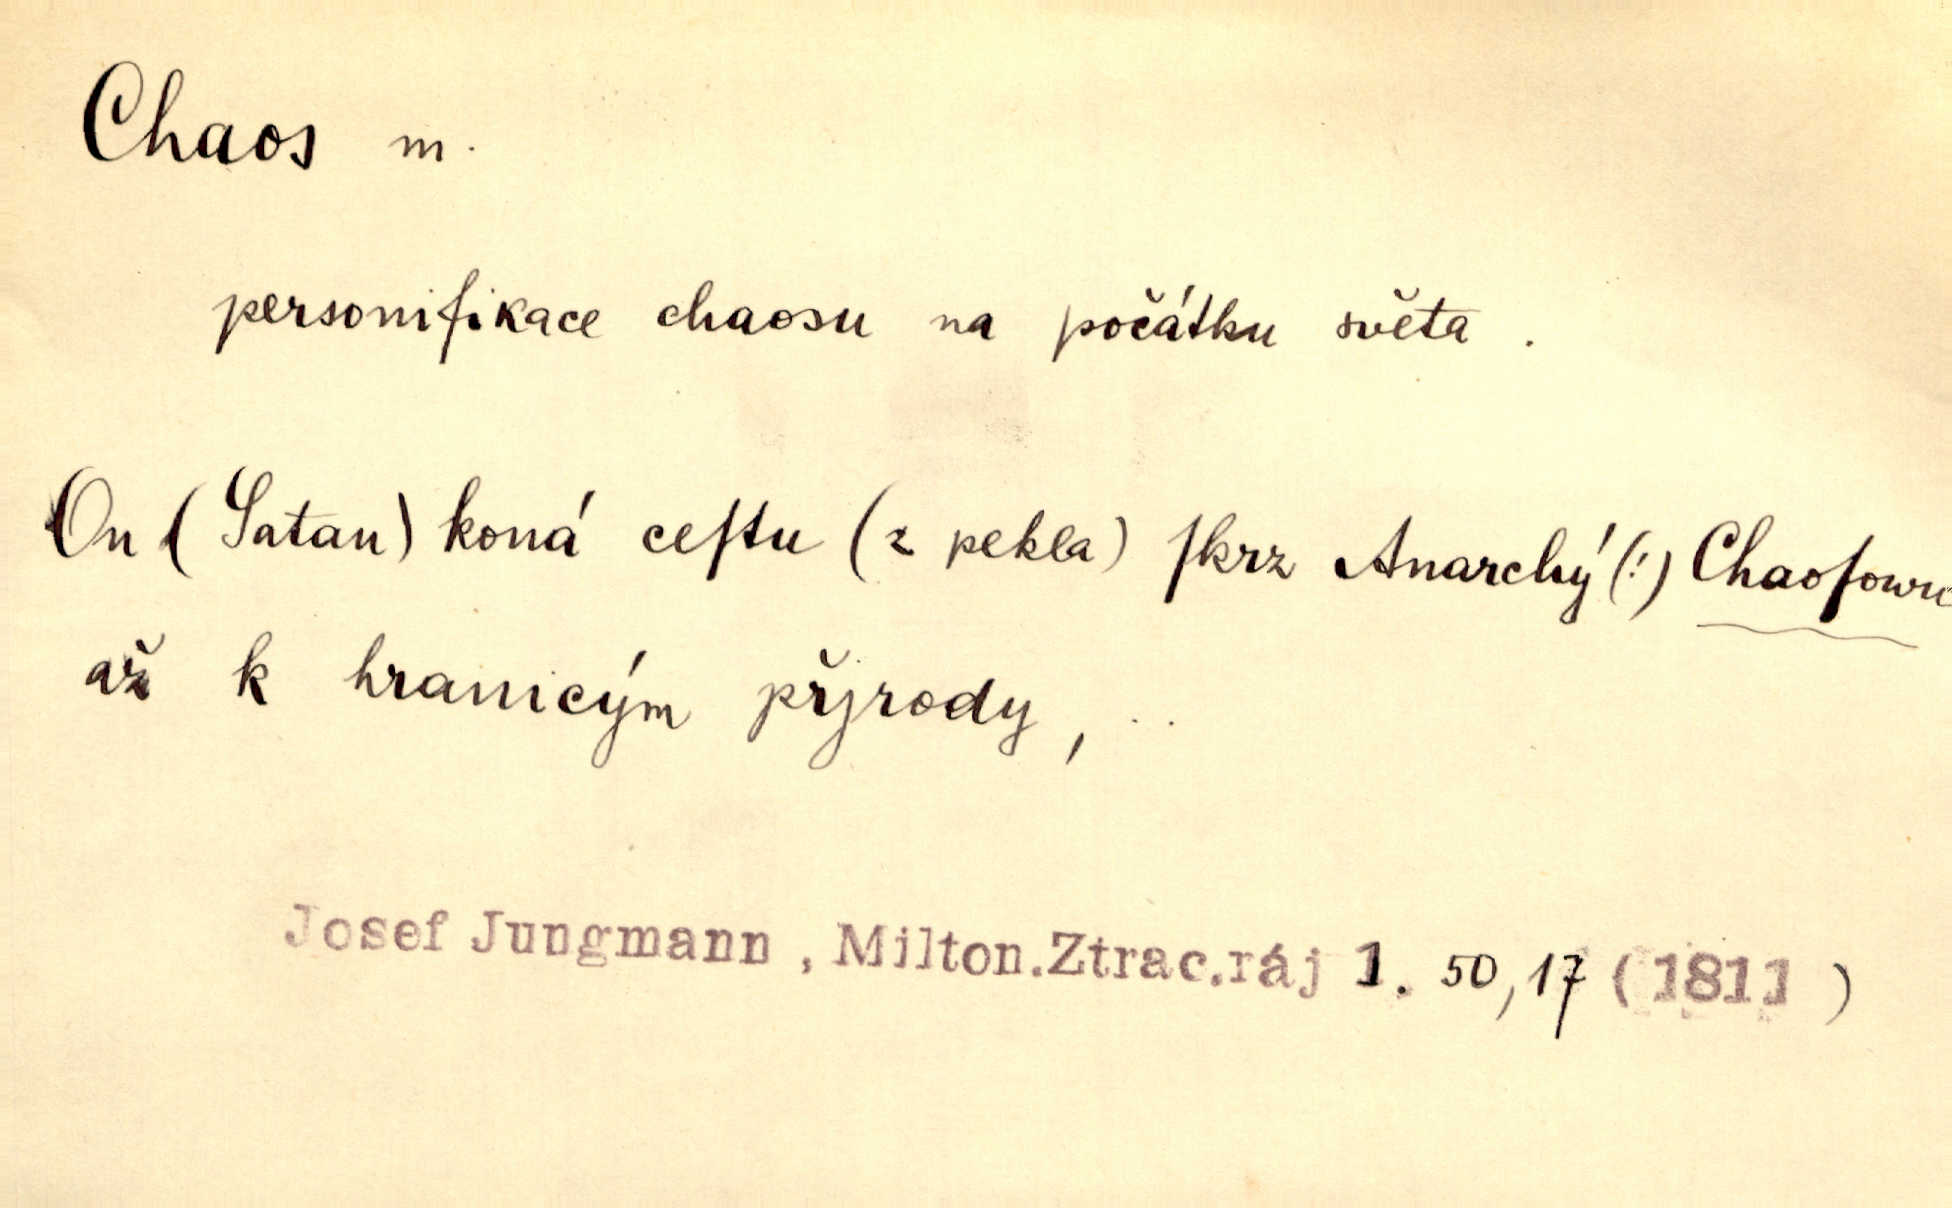 Chaos m.
personifikace chaosu na počátku světa.
On (Satan) koná ceſtu (z pekla) ſkrz Anarchý (!) Chaoſowu
až k hranicým přjrody, ..
Josef Jungmann, Milton.Ztrac.ráj 1. 50,17 (1811)